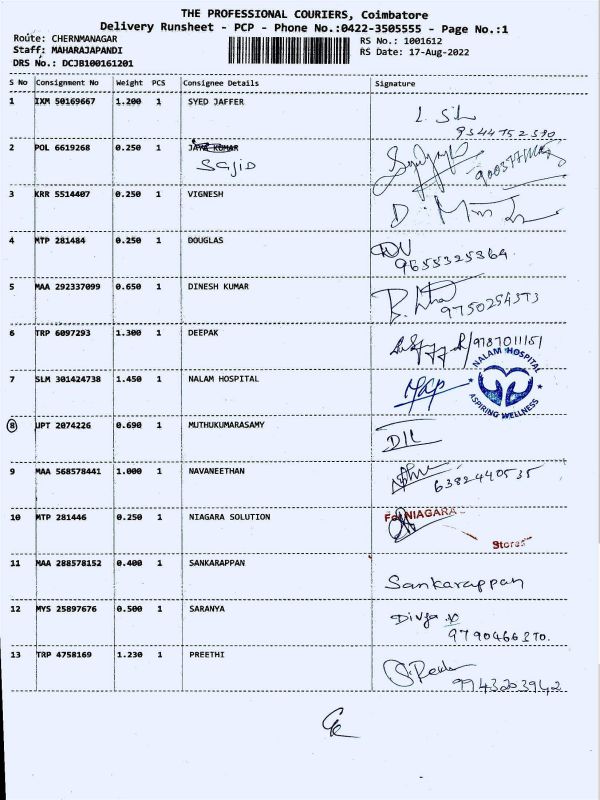 THE PROFESSIONAL COURIERS, Coimbatore
Delivery Runsheet - PCP - Phone No.:0422-3505555 - Page No.:1
Route: CHERNMANAGAR RS No.: 1001612
Staff: MAHARAJAPANDI RS Date: 17-Aug-2022
DRS No.: DCJB100161201
S No Consignment No Weight PCS Consignee Details Signature
1 IXM 50169667 1.200 1 SYED JAFFER
9544752590
2 POL 6619268 0.250 1 JAYA KUMAR
SAJID
3 KRR 5514407 0.250 1 VIGNESH
4 MTP 281484 0.250 1 DOUGLAS
9655325364
5 MAA 292337099 0.650 1 DINESH KUMAR
9750254573
6 TRP 6097293 1.300 1 DEEPAK
9787011151
7 SLM 301424738 1.450 1 NALAM HOSPITAL
NALAM HOSPITAL
ASPIRING WELLNESS
8 UPT 2074226 0.690 1 MUTHUKUMARASAMY
9 MAA 568578441 1.000 1 NAVANEETHAN
6382440535
10 MTP 281446 0.250 1 NIAGARA SOLUTION
For NIAGARA
Stores
11 MAA 288578152 0.400 1 SANKARAPPAN
Sankarappan
12 MYS 25897676 0.500 1 SARANYA
Divya
9790466370.
13 TRP 4758169 1.230 1 PREETHI
9943203942